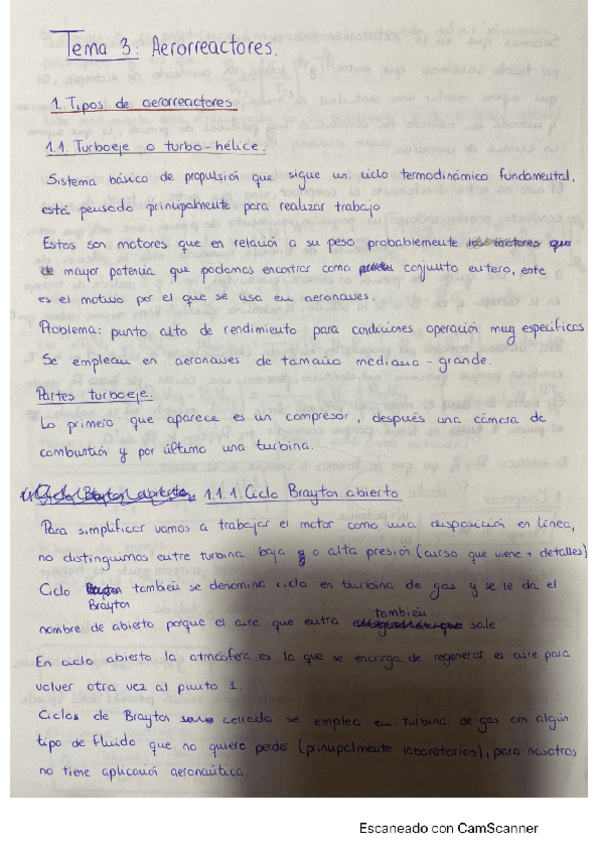 Tema 3: Aerorreactores.
1. Tipos de aerorreactores
1.1. Turboeje o turbo-hélice.
Sistema básico de propulsión que sigue un ciclo termodinámico fundamental,
está pensado principalmente para realizar trabajo
Estos son motores que en relación a su peso probablemente
de mayor potencia que podemos encontrar como conjunto entero, este
es el motivo por el que se usa en aeronaves.
Problema: punto alto de rendimiento para condiciones operación muy específicas
Se emplean en aeronaves de tamaño mediano-grande.
Partes turboeje.
Lo primero que aparece es un compresor, después una cámara de
combustión y por último una turbina.
1.1.1. Ciclo Brayton abierto
Para simplificar vamos a trabajar el motor como una disposición en línea,
no distinguimos entre turbina baja o alta presión (curso que viene + detalles)
Ciclo Brayton también se denomina ciclo en turbina de gas y se le da el
nombre de abierto porque el aire que entra también sale
En ciclo abierto la atmósfera es la que se encarga de regenerar es aire para
volver otra vez al punto 1.
Ciclos de Brayton cerrado se emplea en turbina de gas con algún
tipo de fluido que no quiero perder (principalmente laboratorios), para nosotros
no tiene aplicación aeronaútica.
Escaneado con CamScanner